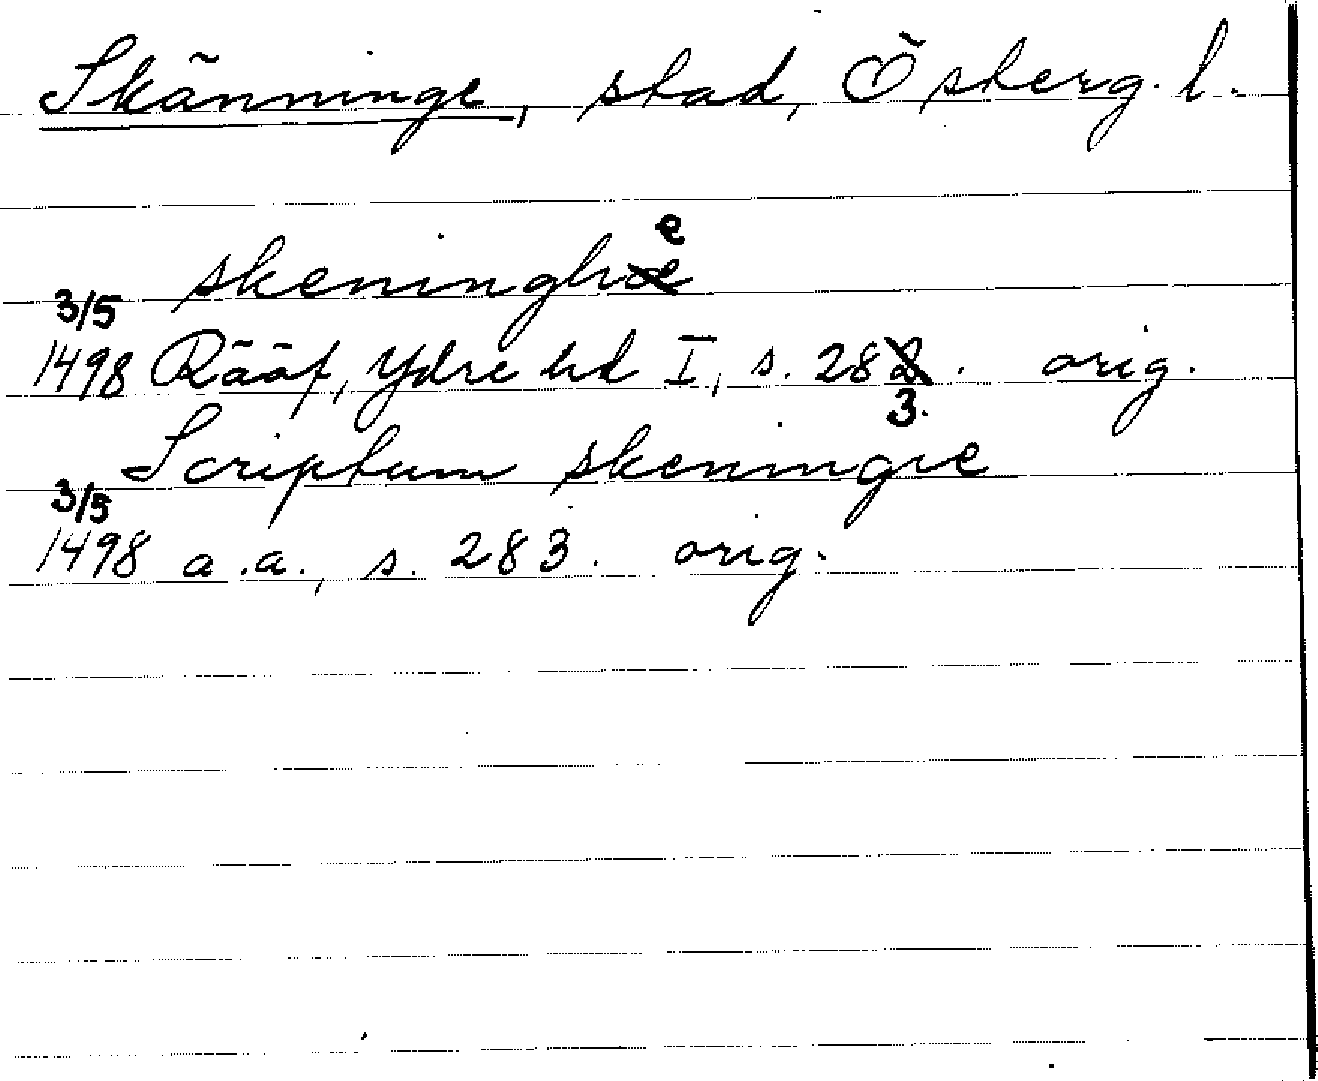 Skänninge, stad, Österg. l.
skeninghe
3/5
1498 Rääf, Ydre hd I, s. 283. orig.
Scriptum skeningie
3/5
1498 a.a., s. 283. orig.